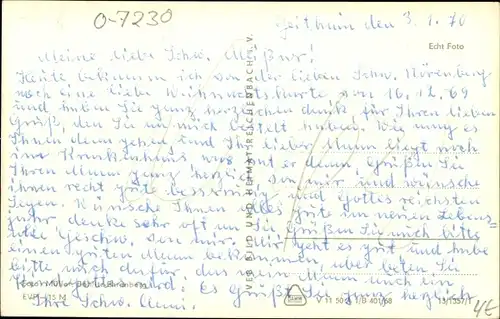 O-7230
Geithain den 3.1.70
Meine liebe Schw.
Echt Foto
Heute bekamm ich von der lieben Schw. Nürenberg
noch eine liebe Weihnachtskarte vom 16.12.69
und haben Sie ganz herzlichen dank für Ihren lieben
Gruß, den Sie an mich bestellt haben. Wie mag es
Ihnen denn gehen und Ihr lieber Mann liegt noch
im Krankenhaus, was hat er denn, Grüßen Sie
Ihren Mann ganz herzlich von mir und wünsche
ihnen recht gute besserung und Gottes reichsten
Segen. Wünsche Ihnen alles Gute im neuen Lebens
jahr denke sehr oft an Sie Grüßen Sie mich bitte
alle Geschw. von mir. Mir geht es gut und habe
einen guten Mann bekommen, aber beten Sie
bitte auch dafür, das mein
und. Es Grüßt Sie ganz herzlich
Ihre Schw.
VEB BILD UND HEIMAT REICHENBACH i. V.
EVP
11 50
401/68
4€